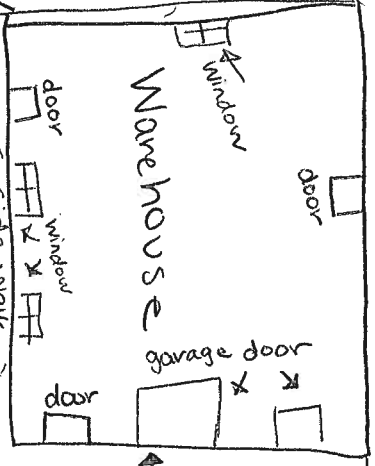 window
door
Warehouse
door
window
garage door
door